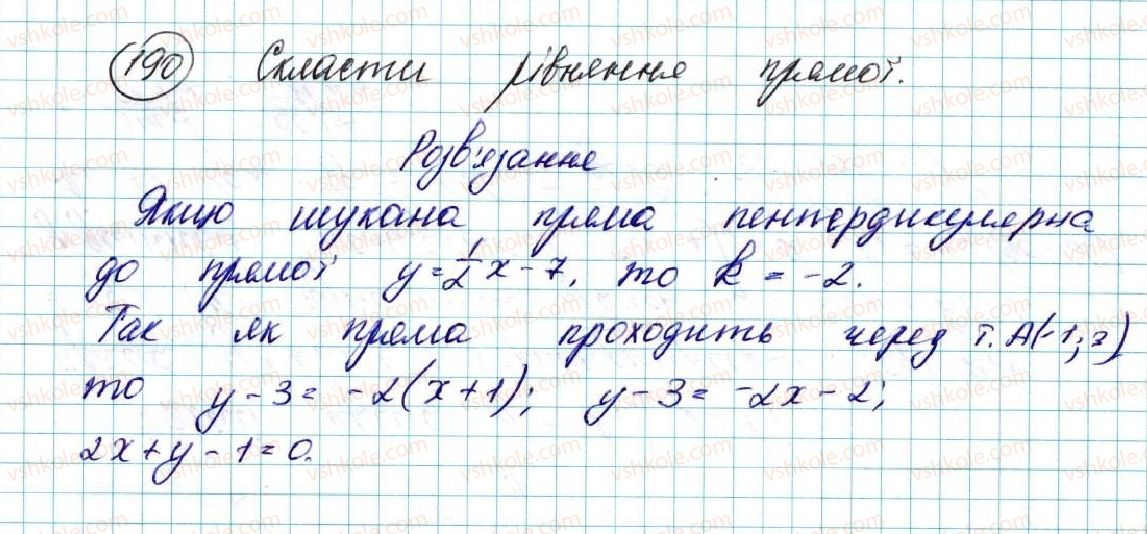 190 Скласти рівняння прямої.
Розв'язання
Якщо шукана пряма пентердикулярна
до прямої y = 1/2 x - 7, то k = -2.
Так як пряма проходить через т. А(-1; 3)
то y - 3 = -2(x + 1); y - 3 = -2x - 2;
2x + y - 1 = 0.